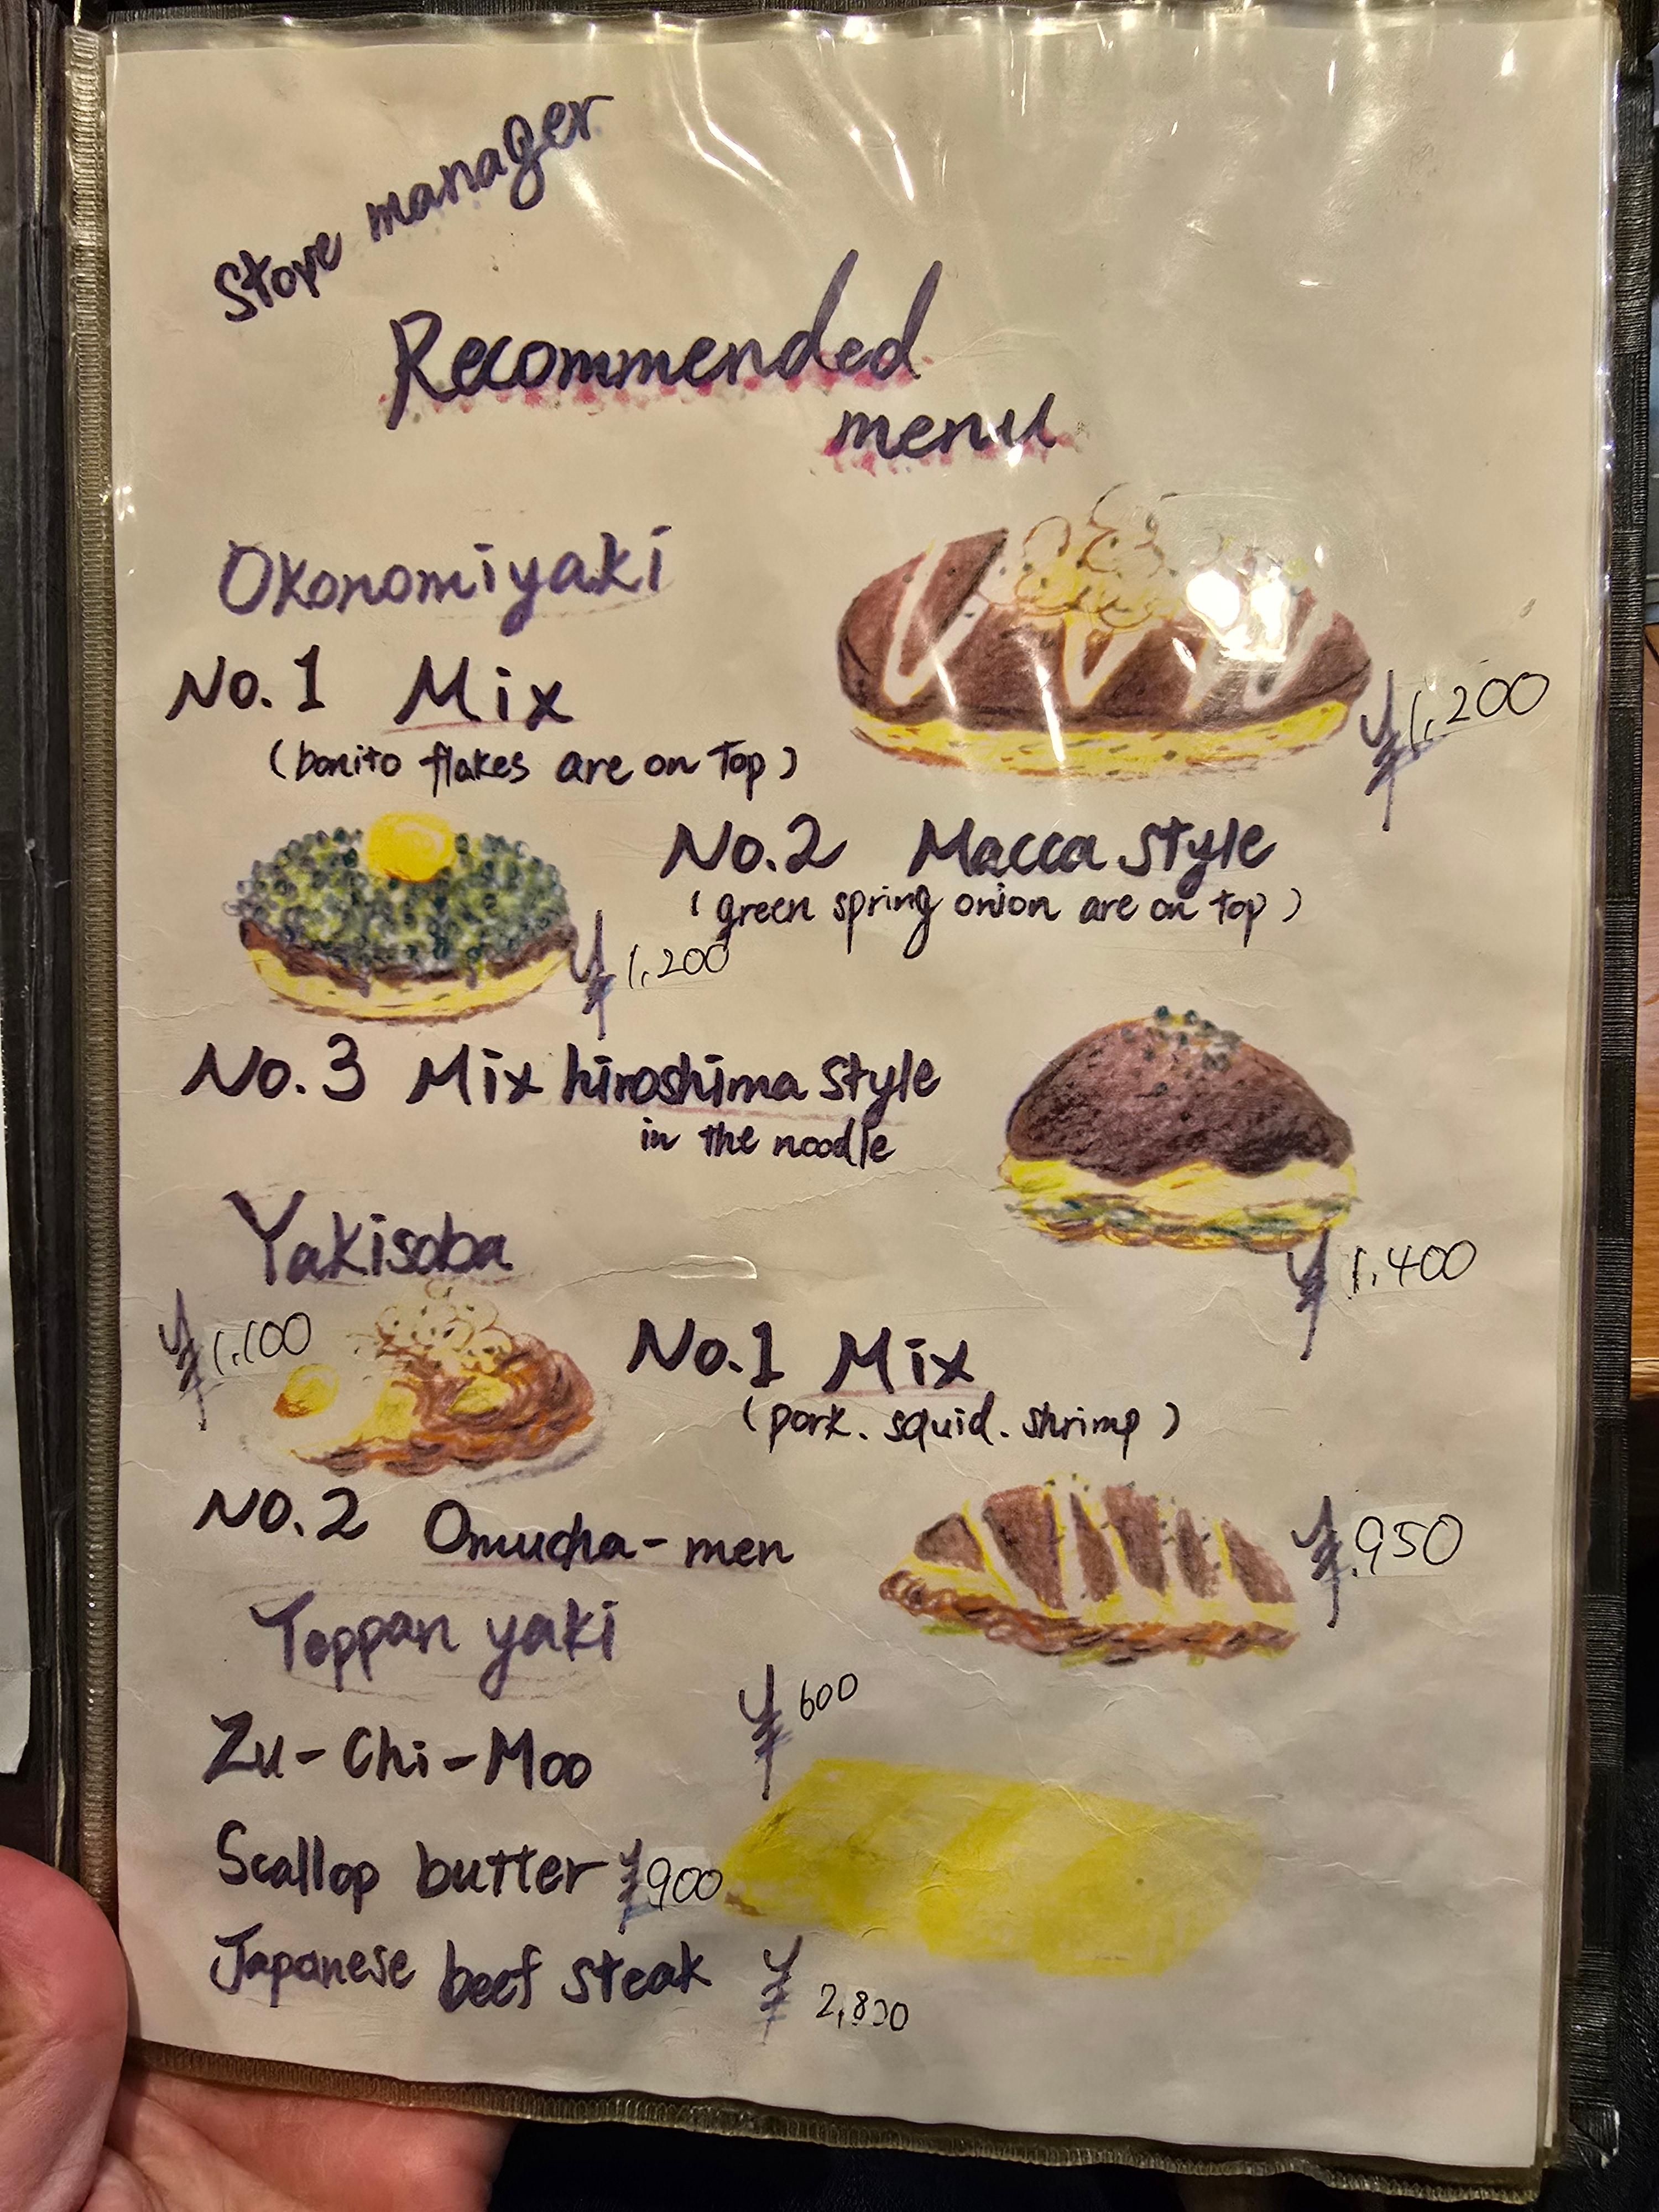 Store manager
Recommended
menu
Okonomiyaki
No.1 Mix
(bonito flakes are on Top)
¥1,200
No.2 Macca style
(green spring onion are on top)
¥1,200
No.3 Mix hiroshima style
in the noodle
¥1,400
Yakisoba
¥1,100
No.1 Mix
(pork. squid. shrimp)
No.2 Omucha-men
¥950
Teppan yaki
Zu-Chi-Moo
¥600
Scallop butter ¥900
Japanese beef steak ¥2,800